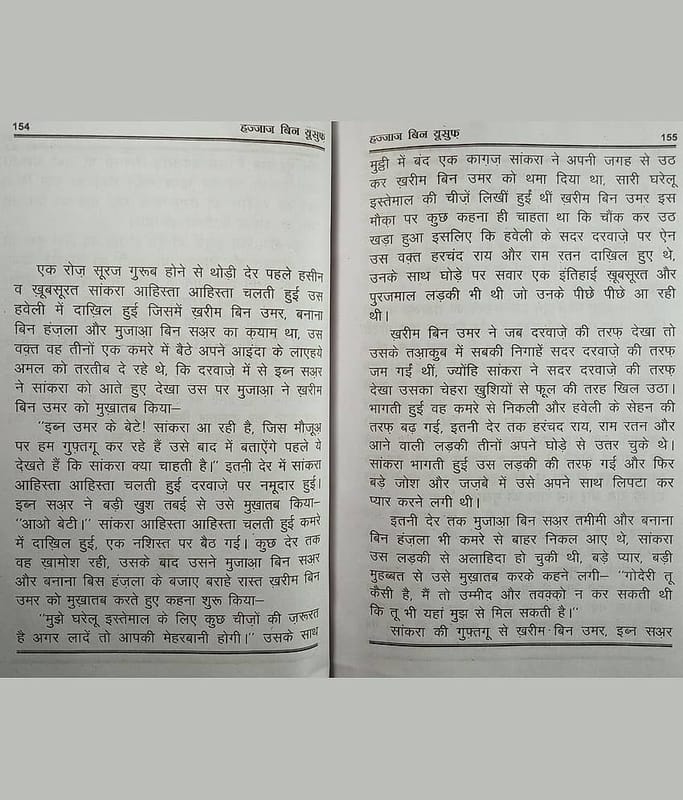 154
हज्जाज बिन यूसुफ़
एक रोज़ सूरज गुरूब होने से थोड़ी देर पहले हसीन
व ख़ूबसूरत सांकरा आहिस्ता आहिस्ता चलती हुई उस
हवेली में दाख़िल हुई जिसमें ख़रीम बिन उमर, बनाना
बिन हंज़ला और मुजाआ बिन सअ़र का क़याम था, उस
वक़्त वह तीनों एक कमरे में बैठे अपने आइंदा के लाएहये
अमल को तरतीब दे रहे थे, कि दरवाज़े में से इब्न सअ़र
ने सांकरा को आते हुए देखा उस पर मुजाआ ने ख़रीम
बिन उमर को मुख़ातब किया–
"इब्न उमर के बेटे! सांकरा आ रही है, जिस मौजूअ़
पर हम गुफ़्तगू कर रहे हैं उसे बाद में बताऐंगे पहले ये
देखते हैं कि सांकरा क्या चाहती है।" इतनी देर में सांकरा
आहिस्ता आहिस्ता चलती हुई दरवाज़े पर नमूदार हुई।
इब्न सअ़र ने बड़ी खुश तबई से उसे मुख़ातब किया–
"आओ बेटी।" सांकरा आहिस्ता आहिस्ता चलती हुई कमरे
में दाख़िल हुई, एक नशिस्त पर बैठ गई। कुछ देर तक
वह ख़ामोश रही, उसके बाद उसने मुजाआ बिन सअ़र
और बनाना बिस हंज़ला के बजाए बराहे रास्त ख़रीम बिन
उमर को मुख़ातब करते हुए कहना शुरू किया–
"मुझे घरेलू इस्तेमाल के लिए कुछ चीज़ों की ज़रूरत
है अगर लादें तो आपकी मेहरबानी होगी।" उसके साथ
हज्जाज बिन यूसुफ़
155
मुट्ठी में बंद एक कागज़ सांकरा ने अपनी जगह से उठ
कर ख़रीम बिन उमर को थमा दिया था, सारी घरेलू
इस्तेमाल की चीज़ें लिखीं हुईं थीं ख़रीम बिन उमर इस
मौक़ा पर कुछ कहना ही चाहता था कि चौंक कर उठ
खड़ा हुआ इसलिए कि हवेली के सदर दरवाज़े पर ऐन
उस वक़्त हरचंद राय और राम रतन दाखिल हुए थे,
उनके साथ घोड़े पर सवार एक इंतिहाई खूबसूरत और
पुरजमाल लड़की भी थी जो उनके पीछे पीछे आ रही
थी।
ख़रीम बिन उमर ने जब दरवाज़े की तरफ़ देखा तो
उसके तअ़ाकुब में सबकी निगाहें सदर दरवाज़े की तरफ़
जम गईं थीं, ज्योंहि सांकरा ने सदर दरवाज़े की तरफ़
देखा उसका चेहरा ख़ुशियों से फूल की तरह खिल उठा।
भागती हुई वह कमरे से निकली और हवेली के सेहन की
तरफ़ बढ़ गई, इतनी देर तक हरंचद राय, राम रतन और
आने वाली लड़की तीनों अपने घोड़े से उतर चुके थे।
सांकरा भागती हुई उस लड़की की तरफ गई और फिर
बड़े जोश और जज़बे में उसे अपने साथ लिपटा कर
प्यार करने लगी थी।
इतनी देर तक मुजाआ बिन सअ़र तमीमी और बनाना
बिन हंज़ला भी कमरे से बाहर निकल आए थे, सांकरा
उस लड़की से अलाहिदा हो चुकी थी, बड़े प्यार, बड़ी
मुहब्बत से उसे मुख़ातब करके कहने लगी– "गोदेरी तू
कैसी है, मैं तो उम्मीद और तवक़्को न कर सकती थी
कि तू भी यहां मुझ से मिल सकती है।"
सांकरा की गुफ़्तगू से ख़रीम बिन उमर, इब्न सअ़र